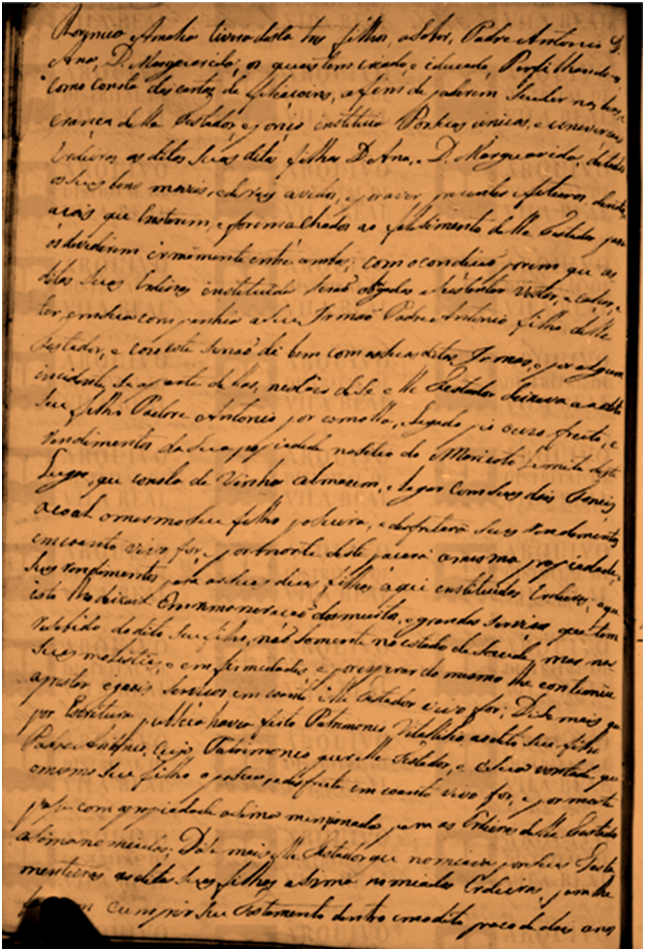 Amelia tivera desta tres filhos, a Saber, Padre Antonio, D.
Ana, D. Margarida, os quais tem criado, e educado, Perfilhando-os
como consta das cartas de filiacoens, a fim de poderem Suceder na sua
erança delle Testador, e por isso instituia Por suas unicas, e universais
Erdeiras as ditas Suas ditas filhas D. Ana, e D. Margarida, de todos
os Seus bens moveis, e de rais avidos, e por aver, prezentes e futuros, dividas
acois que Existirem, e forem achados ao falecimento delle Testador para
os dividirem irmãmente entre ambas; com a condição porem que as
ditas Suas Erdeiras instituidas Serão obrigadas a Sustentar Vestir, e calsar, e
ter, em sua companhia a Seu Irmão Padre Antonio filho delle
Testador, e caso este Senão dê bem com as Suas ditas Irmãs, e por algum
incidente, Se aparte dellas, neste caso disse elle Testador deixava ao dito
Seu filho Padre Antonio por esmolla, e legado pio o uzo fruto, e
rendimentos da Sua propiedade no Sitio do Limite deste
Lugar, que consta de Vinha almasem, e lagar com Seus dois Toneis
a coal o mesmo Seu filho pesuira, e desfrutara Seus rendimentos
em coanto vivo for, e por morte deste pacará a mesma propiedade, e
Seus rendimentos para as Suas duas filhas aqui instituidas Erdeiras, e que
isto lhe deixava Em remoneração dos muitos, e grandes Serviços que tem
resebido do dito Seu filho, não Somente no estado de Saude, mas nas
Suas molestias, e emfermidades, e por esperar do mesmo lhe continue
a prestar eguais Serviços em coanto elle Testador vivo for; Disse mais que
por Escritura publica havia feito Patrimonio Vitalicio, ao dito Seu filho
Padre Antonio, Cujo Patrimonio quer elle Testador, e é Sua vontade que
o mesmo Seu filho o pesua, e disfrute em coanto vivo for, e por morte
pase com a propiedade asima mencionada para as Erdeiras delle Testador
asima nomiadas; Disse mais elle Testador que nomiava por Suas Testa
menteiras as ditas Suas filhas asima nomiadas Erdeiras, para lhe
cumprir Seu Testamento dentro em o dito prazo de dois anos